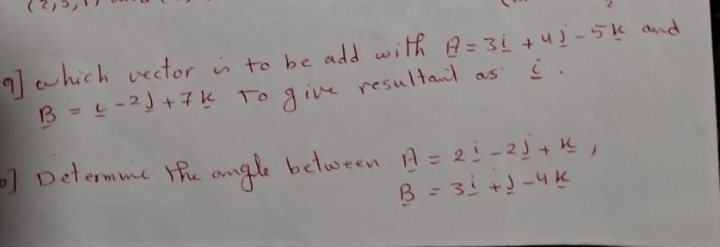 (2,3,1)
9] which vector is to be add with A = 3i + 4j - 5k and
B = i - 2j + 7k To give resultant as i .
] Determine the angle between A = 2i - 2j + k ,
B = 3i + j - 4k